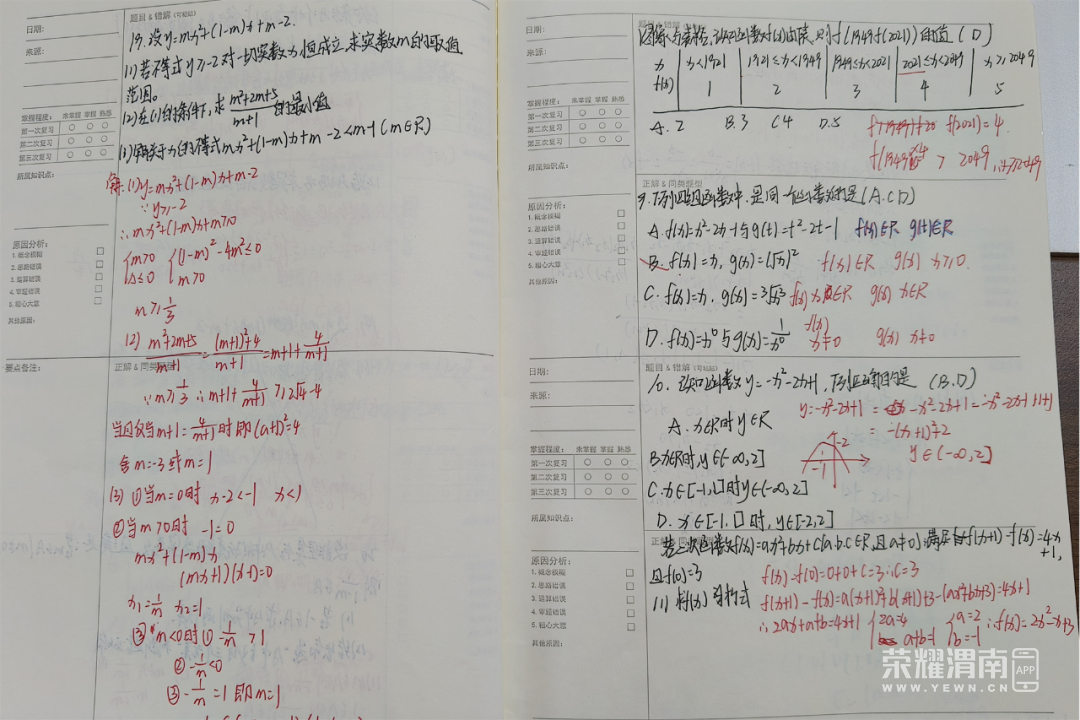 日期:
题目 & 错解(可粘贴)
来源:
19.设y=mx²+(1-m)x+m-2.
(1)若不等式y≥-2对一切实数x恒成立,求实数m的取值
范围。
(2)在(1)的条件下,求 m²+2m+5/m+1 的最小值
(3)解关于x的不等式mx²+(1-m)x+m-2<m-1(m∈R)
掌握程度: 未掌握 掌握 熟悉
第一次复习 ○ ○ ○
第二次复习 ○ ○ ○
第三次复习 ○ ○ ○
所属知识点:
解:(1)y=mx²+(1-m)x+m-2
∵y≥-2
∴mx²+(1-m)x+m≥0
{m>0 {(1-m)²-4m²≤0
{Δ≤0 {m>0
m≥1/3
原因分析:
1. 概念模糊 □
2. 思路错误 □
3. 运算错误 □
4. 审题错误 □
5. 粗心大意 □
其他原因:
(2) m²+2m+5/m+1=(m+1)²+4/m+1=m+1+4/m+1
要点备注:
正解 & 同类题型
∵m≥1/3∴m+1+4/m+1≥2√4=4
当且仅当m+1=4/m+1时即(a+1)²=4
舍m=-3或m=1
(3)①当m=0时 x-2<-1 x<1
②当m>0时 -1=0
mx²+(1-m)x
(mx+1)(x-1)=0
x₁=1/m x₂=1
③m<0时①-1/m>1
②-1/m<0
③-1/m=1即m=1
日期:
题目 & 错解(可粘贴)
来源:
函数f(x)由表,则f(1949f(2021))的值(D)
x x<1921 1921≤x<1949 1949≤x<2021 2021≤x<2049 x≥2049
f(x) 1 2 3 4 5
A.2 B.3 C4 D.5
f(2021)=4
掌握程度: 未掌握 掌握 熟悉
第一次复习 ○ ○ ○
第二次复习 ○ ○ ○
第三次复习 ○ ○ ○
所属知识点:
正解 & 同类题型
9.下列四组函数中,是同一个函数的是(A.CD)
A.f(x)=x²-2x-1与g(t)=t²-2t-1 f(x)∈R g(t)∈R
B.f(x)=x,g(x)=(√x)² f(x)∈R g(x) x≥0.
C.f(x)=x.g(x)=3√x³ f(x)x∈R g(x) x∈R
D.f(x)=x⁰与g(x)=1/x⁰ f(x) x≠0 g(x) x≠0
原因分析:
1. 概念模糊 □
2. 思路错误 □
3. 运算错误 □
4. 审题错误 □
5. 粗心大意 □
其他原因:
日期:
题目 & 错解(可粘贴)
来源:
10.已知函数y=-x²-2x+1,下列正确的是 (B.D)
A.x∈R时y∈R
y=-x²-2x+1=-x²-2x+1=-x²-2x-1+1+1
=-(x+1)²+2
y∈(-∞,2]
-2
-1
B.x∈R时,y∈(-∞,2]
C.x∈[-1,1]时y∈(-∞,2]
D.x∈[-1,1]时,y∈[-2,2]
掌握程度: 未掌握 掌握 熟悉
第一次复习 ○ ○ ○
第二次复习 ○ ○ ○
第三次复习 ○ ○ ○
所属知识点:
正解 & 同类题型
若二次函数f(x)=ax²+bx+c(a.b.c∈R,且a≠0),满足f(x+1)-f(x)=4x
+1,
且f(0)=3
(1)求f(x)解析式
f(x)=f(0)=0+0+C=3∴C=3
f(x+1)-f(x)=a(x+1)²+b(x+1)+3-(ax²+bx+3)=4x+1
∴2ax+a+b=4x+1 {2a=4 {a=2 ∴f(x)=2x²-x+3
{a+b=1 {b=-1
原因分析:
1. 概念模糊 □
2. 思路错误 □
3. 运算错误 □
4. 审题错误 □
5. 粗心大意 □
其他原因:
荣耀渭南 APP
WWW.YEWN.CN